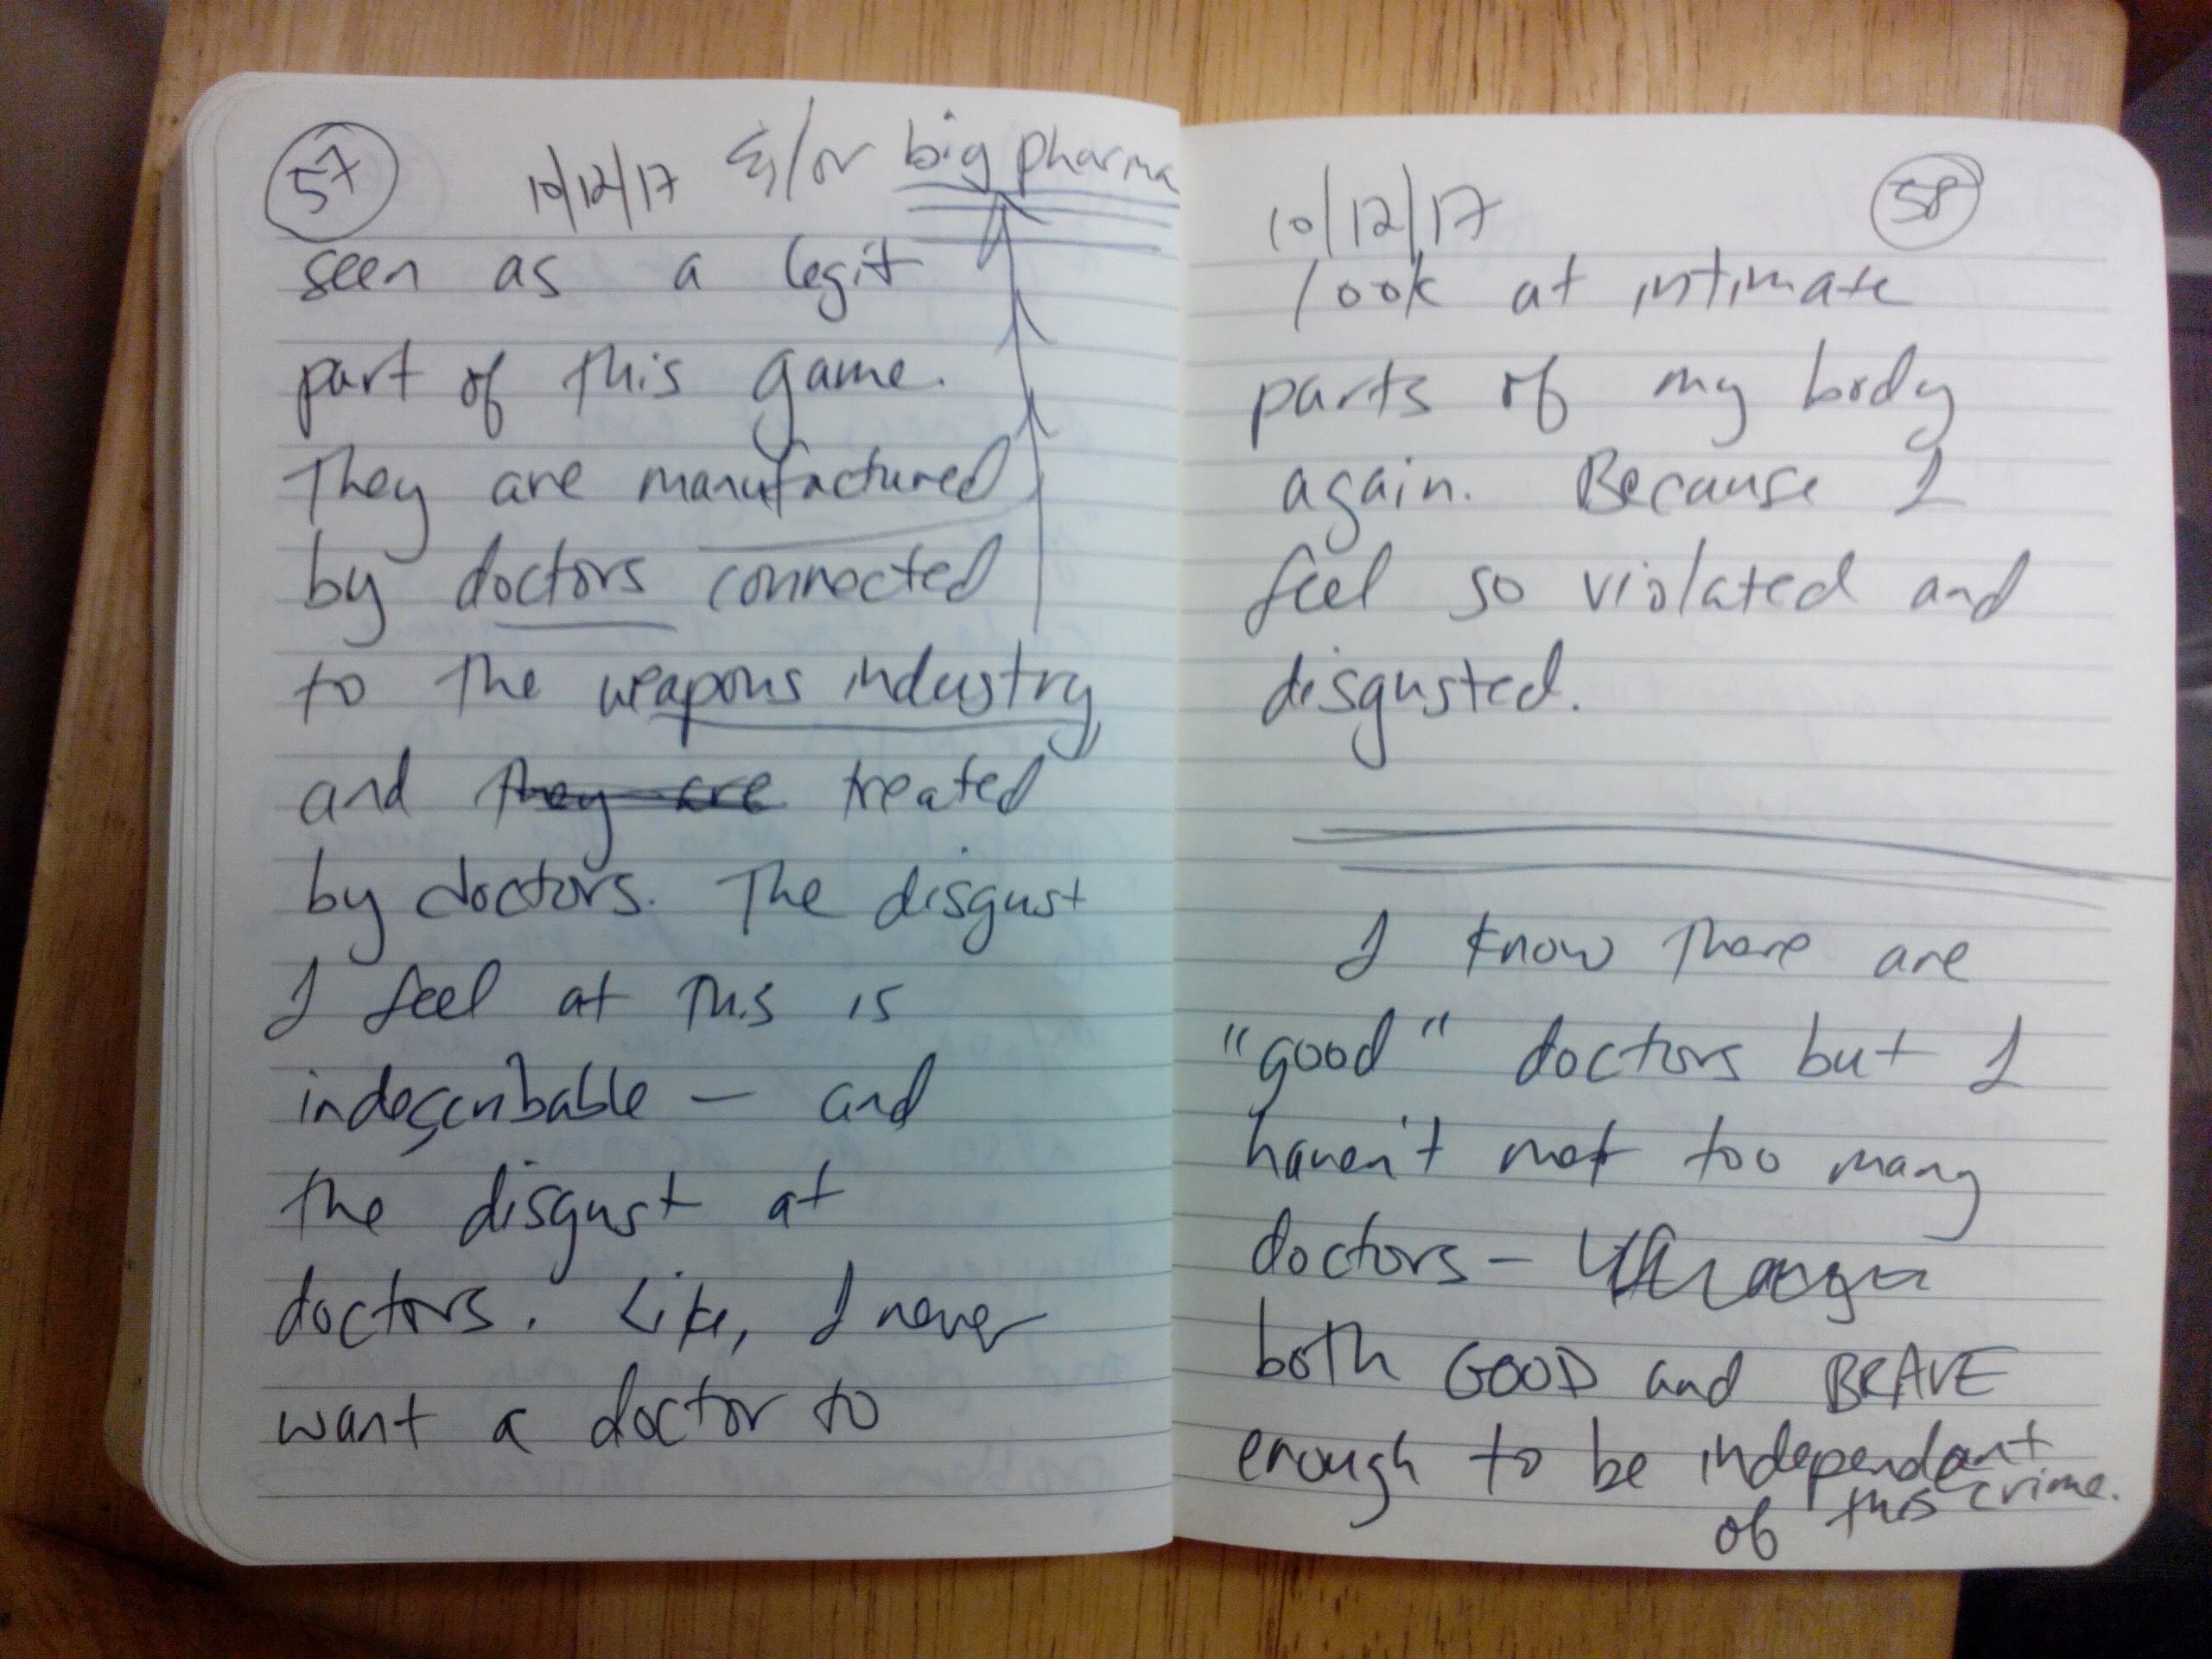 57
10/12/17 &/or big pharma
seen as a legit
part of this game.
They are manufactured
by doctors connected
to the weapons industry
and they are treated
by doctors. The disgust
I feel at this is
indescribable — and
the disgust at
doctors. Like, I never
want a doctor to
58
10/12/17
look at intimate
parts of my body
again. Because I
feel so violated and
disgusted.
I know there are
"good" doctors but I
haven't met too many
doctors —
both GOOD and BRAVE
enough to be independant
of this crime.